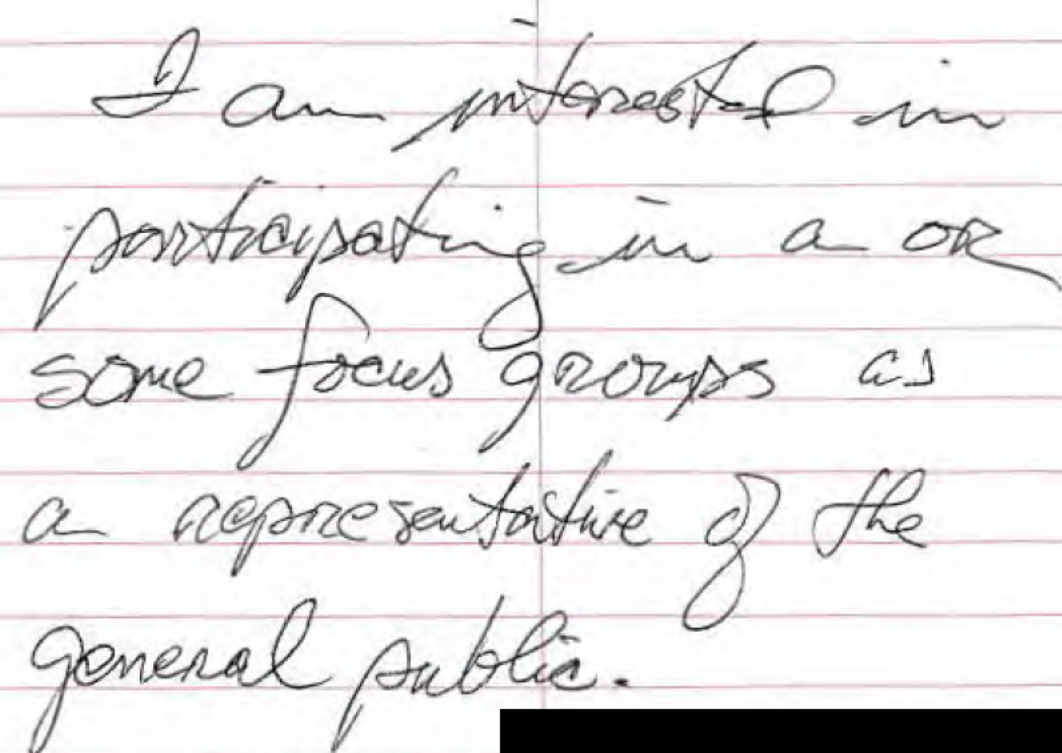 I am interested in
participating in a or
some focus groups as
a representative of the
general public.